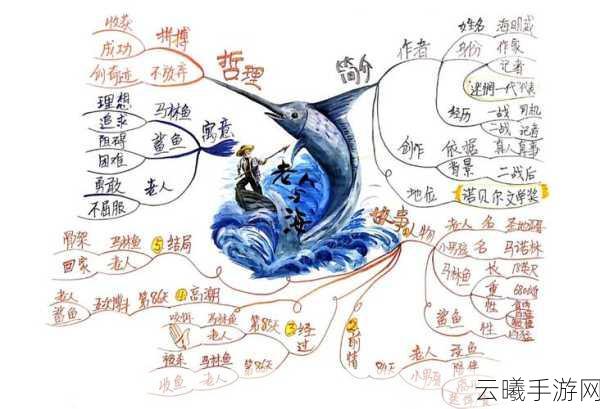 老人与海
哲理
拼搏
收获
成功
不放弃
创奇迹
寓意
马林鱼
理想
追求
鲨鱼
阻碍
困难
老人
勇敢
不屈服
简介
作者
姓名 海明威
身份 作家
记者
迷惘一代代表
经历 一战 司机
二战 记者
创作 依据 真人真事
背景 二战后
地位 诺贝尔文学奖
故事
人物
老人 名 圣地亚哥
小男孩 名 马诺林
马林鱼 长 18英尺
重
性
鲨鱼 性
②前情
84天
老人 没鱼
小男孩 陪伴
③经过
第85天
咬钩 马林鱼
老人
第86天
马林鱼
老人
④高潮
第87天
老人
鲨鱼
⑤结局
骨架 马林鱼
回家 老人
云曦手游网